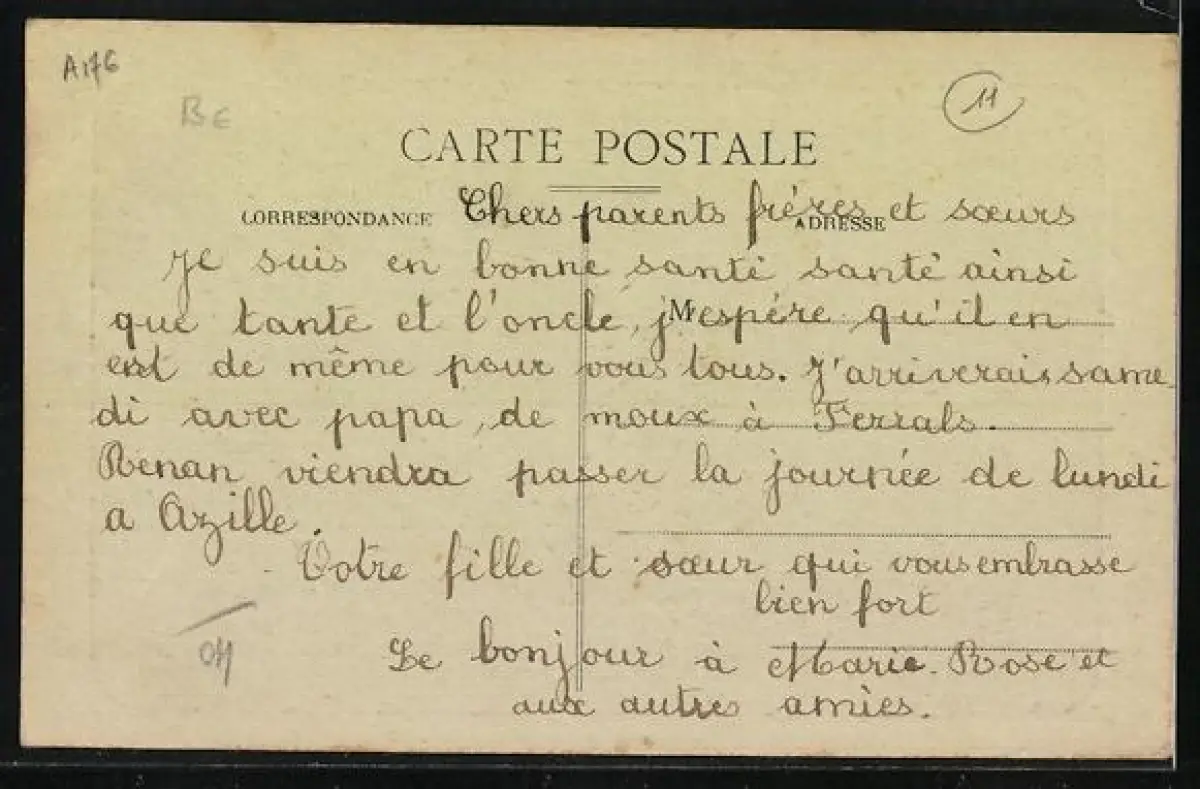 A176
BE
11
CARTE POSTALE
CORRESPONDANCE Chers parents fréres et sœurs
ADRESSE
Je suis en bonne santé santé ainsi
que tante et l'oncle, j'espére qu'il en
M
est de même pour vous tous. J'arriverais same
di avec papa, de moux à Ferrals.
Renan viendra passer la journée de lundi
a Azille.
Votre fille et sœur qui vous embrasse
bien fort
Le bonjour à Marie. Rose et
aux autres amies.